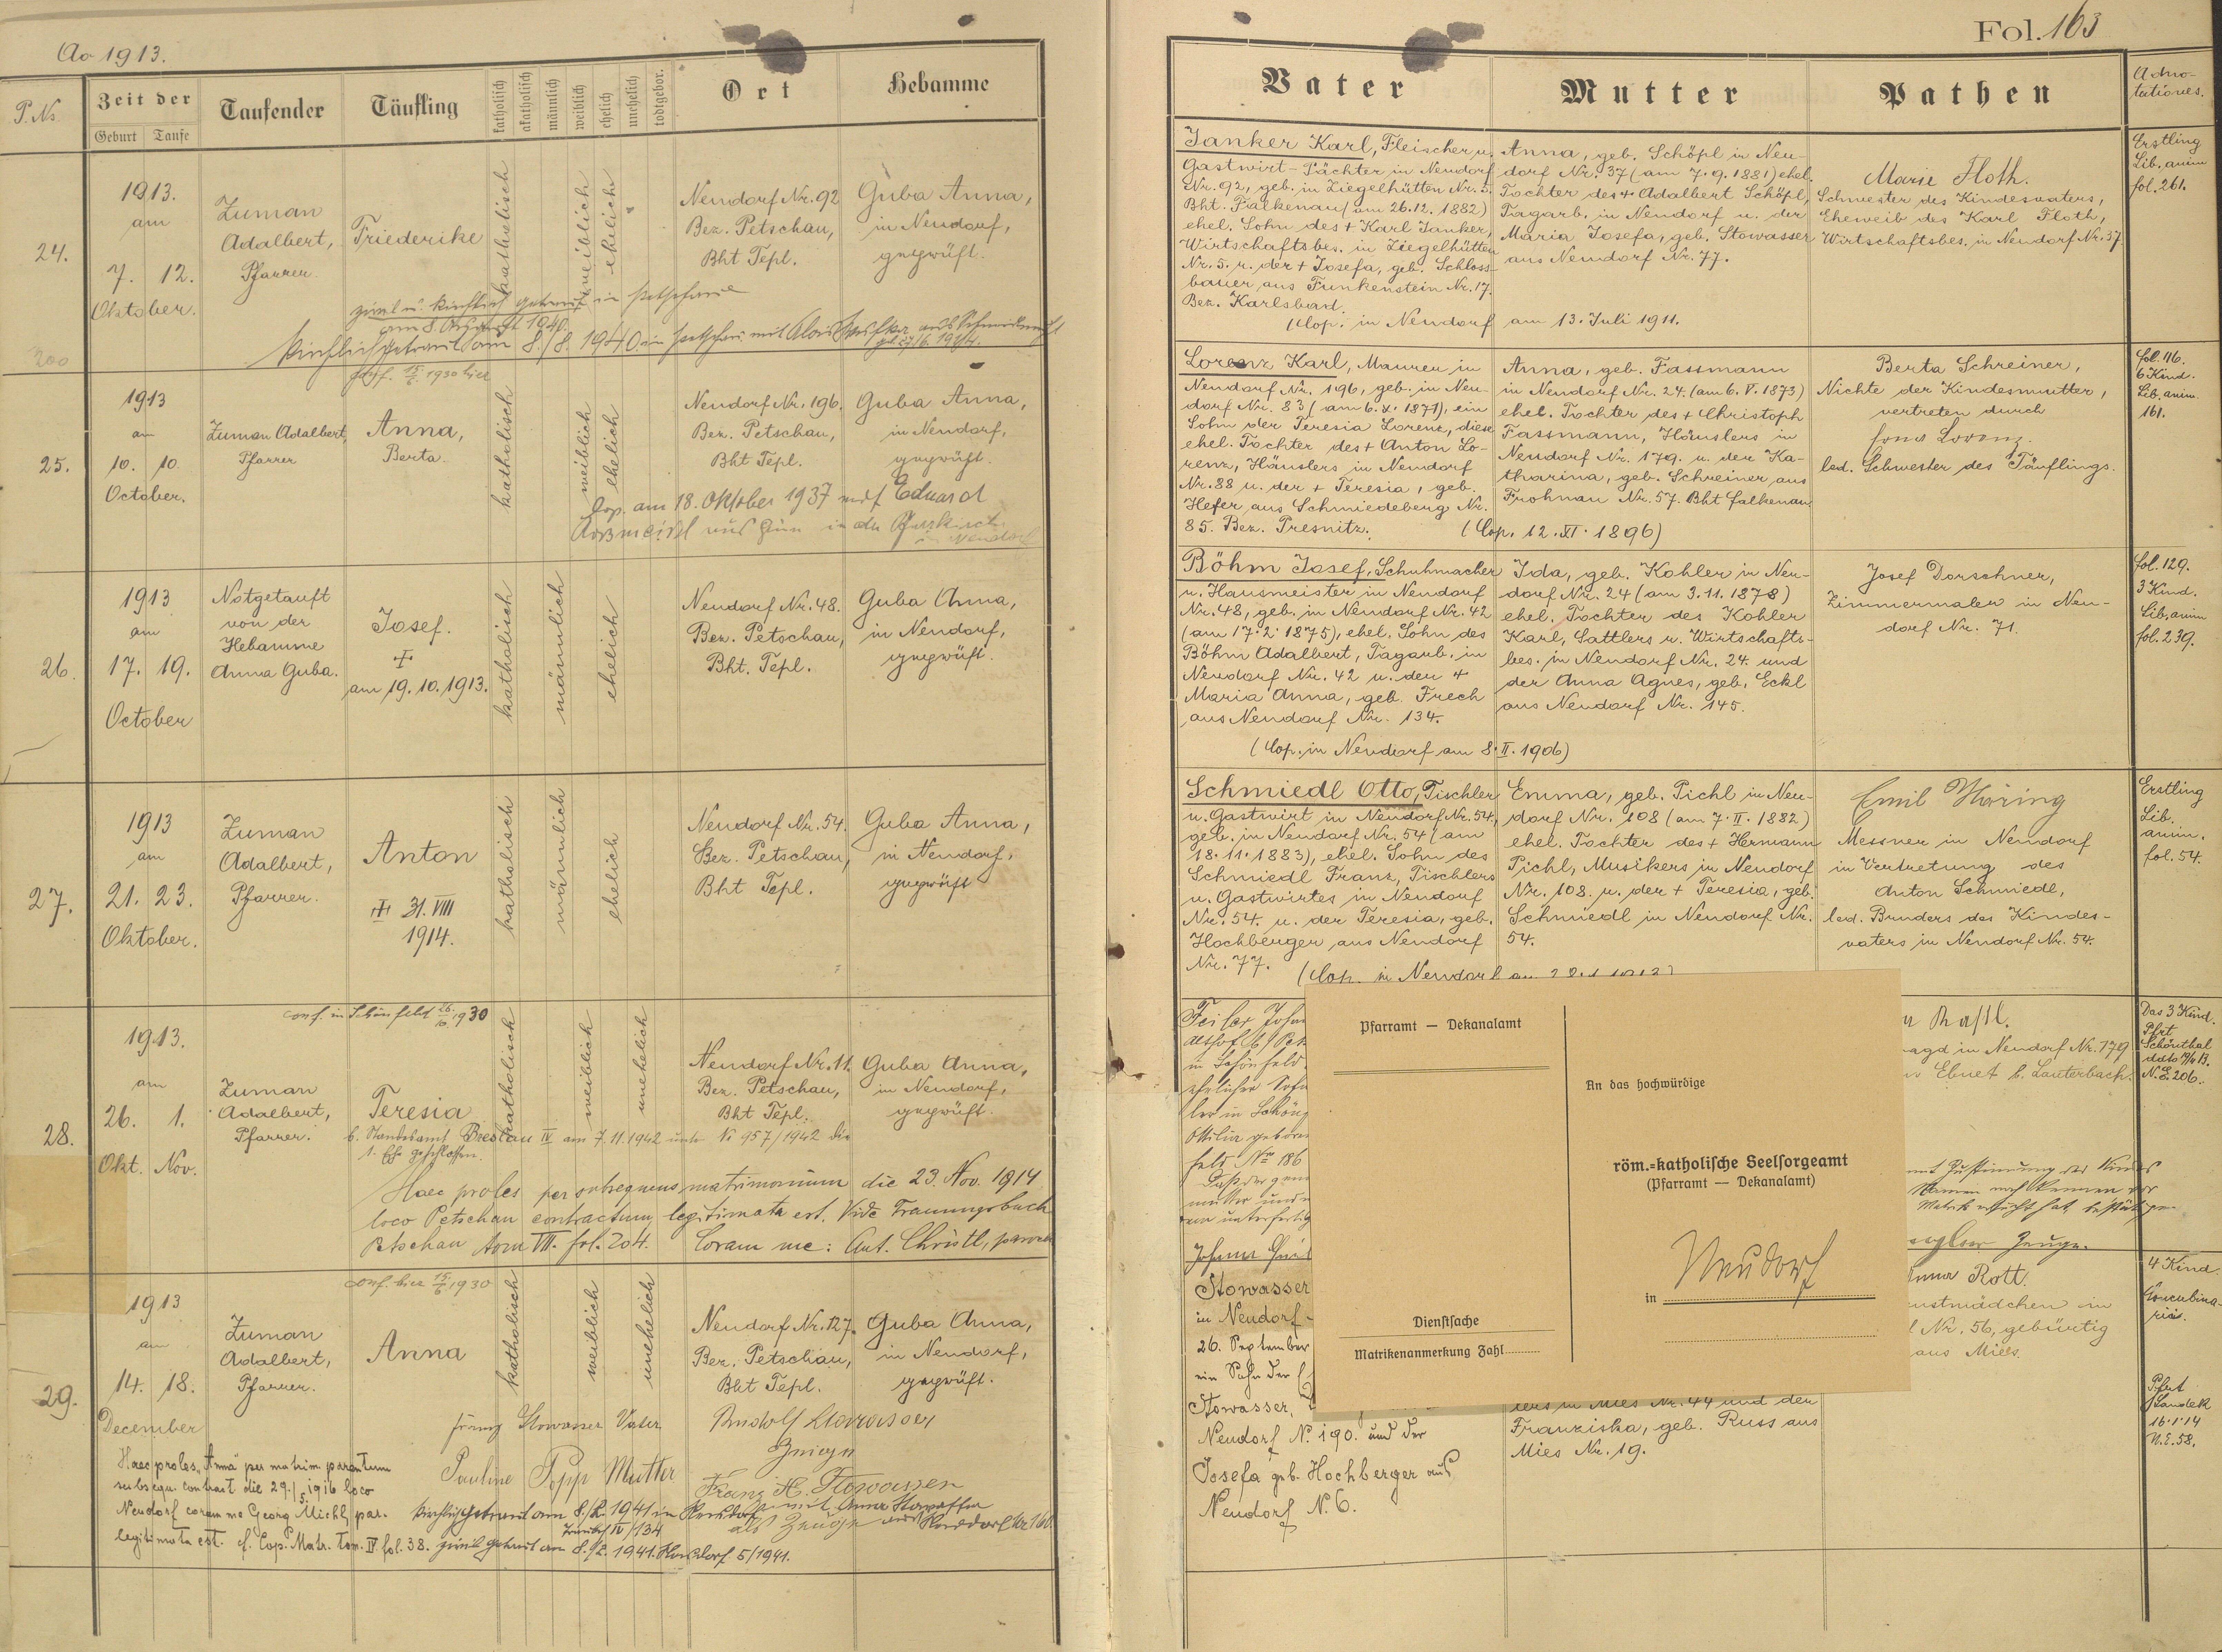 Ao 1913.
P. No.
Zeit der
Geburt
Taufe
Taufender
Täufling
katholisch
akatholisch
männlich
weiblich
ehelich
unehelich
todtgebor.
Ort
Hebamme
24.
1913.
am
7. 12.
Oktober.
Zuman
Adalbert,
Pfarrer.
Friederike
katholisch
weiblich
ehelich
Neudorf Nr. 92
Bez. Petschau,
Bht Tepl.
Guba Anna,
in Neudorf,
geprüft.
zivil u. kirchlich getraut in Petschau
am 8. August 1940.
Kirchlich getraut am 8./8. 1940 in Petschau mit Alois
25.
1913
am
10. 10.
October.
Zuman Adalbert,
Pfarrer
Anna,
Berta.
katholisch
weiblich
ehelich
Neudorf Nr. 196.
Bez. Petschau,
Bht Tepl.
Guba Anna,
in Neudorf,
geprüft.
Cop. am 18. Oktober 1937 mit Eduard
in der Pfarrkirche
in Neudorf
26.
1913
am
17. 19.
October
Notgetauft
von der
Hebamme
Anna Guba.
Josef.
+
am 19. 10. 1913.
katholisch
männlich
ehelich
Neudorf Nr. 48.
Bez. Petschau,
Bht. Tepl.
Guba Anna,
in Neudorf,
geprüft.
27.
1913
am
21. 23.
Oktober.
Zuman
Adalbert,
Pfarrer.
Anton
+ 31. VIII
1914.
katholisch
männlich
ehelich
Neudorf Nr. 54.
Bez. Petschau,
Bht Tepl.
Guba Anna,
in Neudorf,
geprüft
conf. in Schönfeld 26./10. 1930
28.
1913.
am
26. 1.
Okt. Nov.
Zuman
Adalbert,
Pfarrer.
Teresia
katholisch
weiblich
unehelich
Neudorf Nr. 11.
Bez. Petschau,
Bht Tepl.
Guba Anna,
in Neudorf,
geprüft.
b. Standesamt Breslau IV am 7. 11. 1942 unter N 957/1942 die
1. Ehe geschlossen.
Haec proles per subsequens matrimonium die 23. Nov. 1914
loco Petschau contractum legitimata est. Vide Trauungsbuch
Petschau tom VII. fol. 204. Coram me: Ant. Christl,
conf. hier 15/6 1930
29.
1913
am
14. 18.
December
Zuman
Adalbert,
Pfarrer.
Anna
katholisch
weiblich
unehelich
Neudorf Nr. 127.
Bez. Petschau,
Bht Tepl.
Guba Anna,
in Neudorf,
geprüft.
Franz Stowasser Vater
Pauline Popp Mutter
Rudolf Stowasser
Zeuge
Franz H. Stowasser
als Zeuge
Haec proles "Anna" per matrim. parentum
subsequ. contract die 29./5. 1916 loco
Neudorf coram me Georg Michl, par.
legitimata est. cf. Cop. Matr. tom. IV fol. 38.
Kirchlich getraut am 8./2. 1941 in Neudorf mit
zivil getraut am 8./2. 1941. Neudorf 5/1941.
Fol. 163
Vater
Mutter
Pathen
Adno-
tationes.
Janker Karl, Fleischer u.
Gastwirt-Pächter in Neudorf
Nr. 92, geb. in Ziegelhütten Nr. 5.
Bht. Falkenau (am 26. 12. 1882)
ehel. Sohn des + Karl Janker,
Wirtschaftsbes. in Ziegelhütten
Nr. 5. u. der + Josefa, geb. Schloss-
bauer aus Funkenstein Nr. 17.
Bez. Karlsbad.
(Cop. in Neudorf am 13. Juli 1911.
Anna, geb. Schöpl in Neu-
dorf Nr. 37 (am 7. 9. 1881) ehel.
Tochter des + Adalbert Schöpl,
Tagarb. in Neudorf u. der
Maria Josefa, geb. Stowasser
aus Neudorf Nr. 77.
Marie Floth.
Schwester des Kindesvaters,
Eheweib des Karl Floth,
Wirtschaftsbes. in Neudorf Nr. 37
Erstling
Lib. anim
fol. 261.
Lorenz Karl, Maurer in
Neudorf Nr. 196, geb. in Neu-
dorf Nr. 83 (am 6. X. 1871), ein
Sohn der Teresia Lorenz, diese
ehel. Tochter des + Anton Lo-
renz, Häuslers in Neudorf
Nr. 88 u. der + Teresia, geb.
Hefer aus Schmiedeberg Nr.
85. Bez. Presnitz. (Cop. 12. XI. 1896)
Anna, geb. Fassmann
in Neudorf Nr. 24. (am 6. V. 1873)
ehel. Tochter des + Christoph
Fassmann, Häuslers in
Neudorf Nr. 179. u. der Ka-
tharina, geb. Schreiner aus
Frohnau Nr. 57. Bht Falkenau.
Berta Schreiner,
Nichte der Kindesmutter,
vertreten durch
Lorenz.
led. Schwester des Täuflings.
fol. 116.
6 Kind.
Lib. anim.
161.
Böhm Josef, Schuhmacher
u. Hausmeister in Neudorf
Nr. 48, geb. in Neudorf Nr. 42
(am 17. 2. 1875), ehel. Sohn des
Böhm Adalbert, Tagarb. in
Neudorf Nr. 42 u. der +
Maria Anna, geb. Frech
aus Neudorf Nr. 134.
(Cop. in Neudorf am 8. II. 1906)
Ida, geb. Kohler in Neu-
dorf Nr. 24 (am 3. 11. 1878)
ehel. Tochter des Kohler
Karl, Sattlers u. Wirtschafts-
bes. in Neudorf Nr. 24. und
der Anna Agnes, geb. Eckl
aus Neudorf Nr. 145.
Josef Dorschner,
Zimmermaler in Neu-
dorf Nr. 71.
fol. 129.
3 Kind.
Lib. anim
fol. 239.
Schmiedl Otto, Tischler
u. Gastwirt in Neudorf Nr. 54,
geb. in Neudorf Nr. 54 (am
18. 11. 1883), ehel. Sohn des
Schmiedl Franz, Tischlers
u. Gastwirtes in Neudorf
Nr. 54. u. der Teresia, geb.
Hochberger aus Neudorf
Nr. 77. (Cop. in Neudorf
Emma, geb. Pichl in Neu-
dorf Nr. 108 (am 7. II. 1882)
ehel. Tochter des + Hermann
Pichl, Musikers in Neudorf
Nr. 108. u. der + Teresia, geb.
Schmiedl in Neudorf Nr.
54.
Emil Haring
Messner in Neudorf
in Vertretung des
Anton Schmiedl,
led. Bruders des Kindes-
vaters in Neudorf Nr. 54.
Erstling
Lib.
anim.
fol. 54.
Feiler
in Schönfeld.
ehelicher
ler in
Ottilia
feld No 186
in Neudorf Nr. 179
Ebnet b. Lauterbach.
mit Zustimmung des
Zeuge.
Das 3 Kind.
Pfrt
Schönthal
N. E. 206.
Pfarramt — Dekanalamt
Dienstsache
Matrikenanmerkung Zahl
An das hochwürdige
röm.-katholische Seelsorgeamt
(Pfarramt — Dekanalamt)
in Neudorf
Stowasser
in Neudorf
26. September
ein Sohn der
Stowasser,
Neudorf N. 190. und der
Josefa geb. Hochberger aus
Neudorf N. 6.
in Mies Nr. 44 und der
Franziska, geb. Russ aus
Mies Nr. 19.
Rott.
in
Nr. 56, gebürtig
aus Mies.
4 Kind.
Concubina-
rii.
Pfrt
16. 1. 14
N. E. 58.